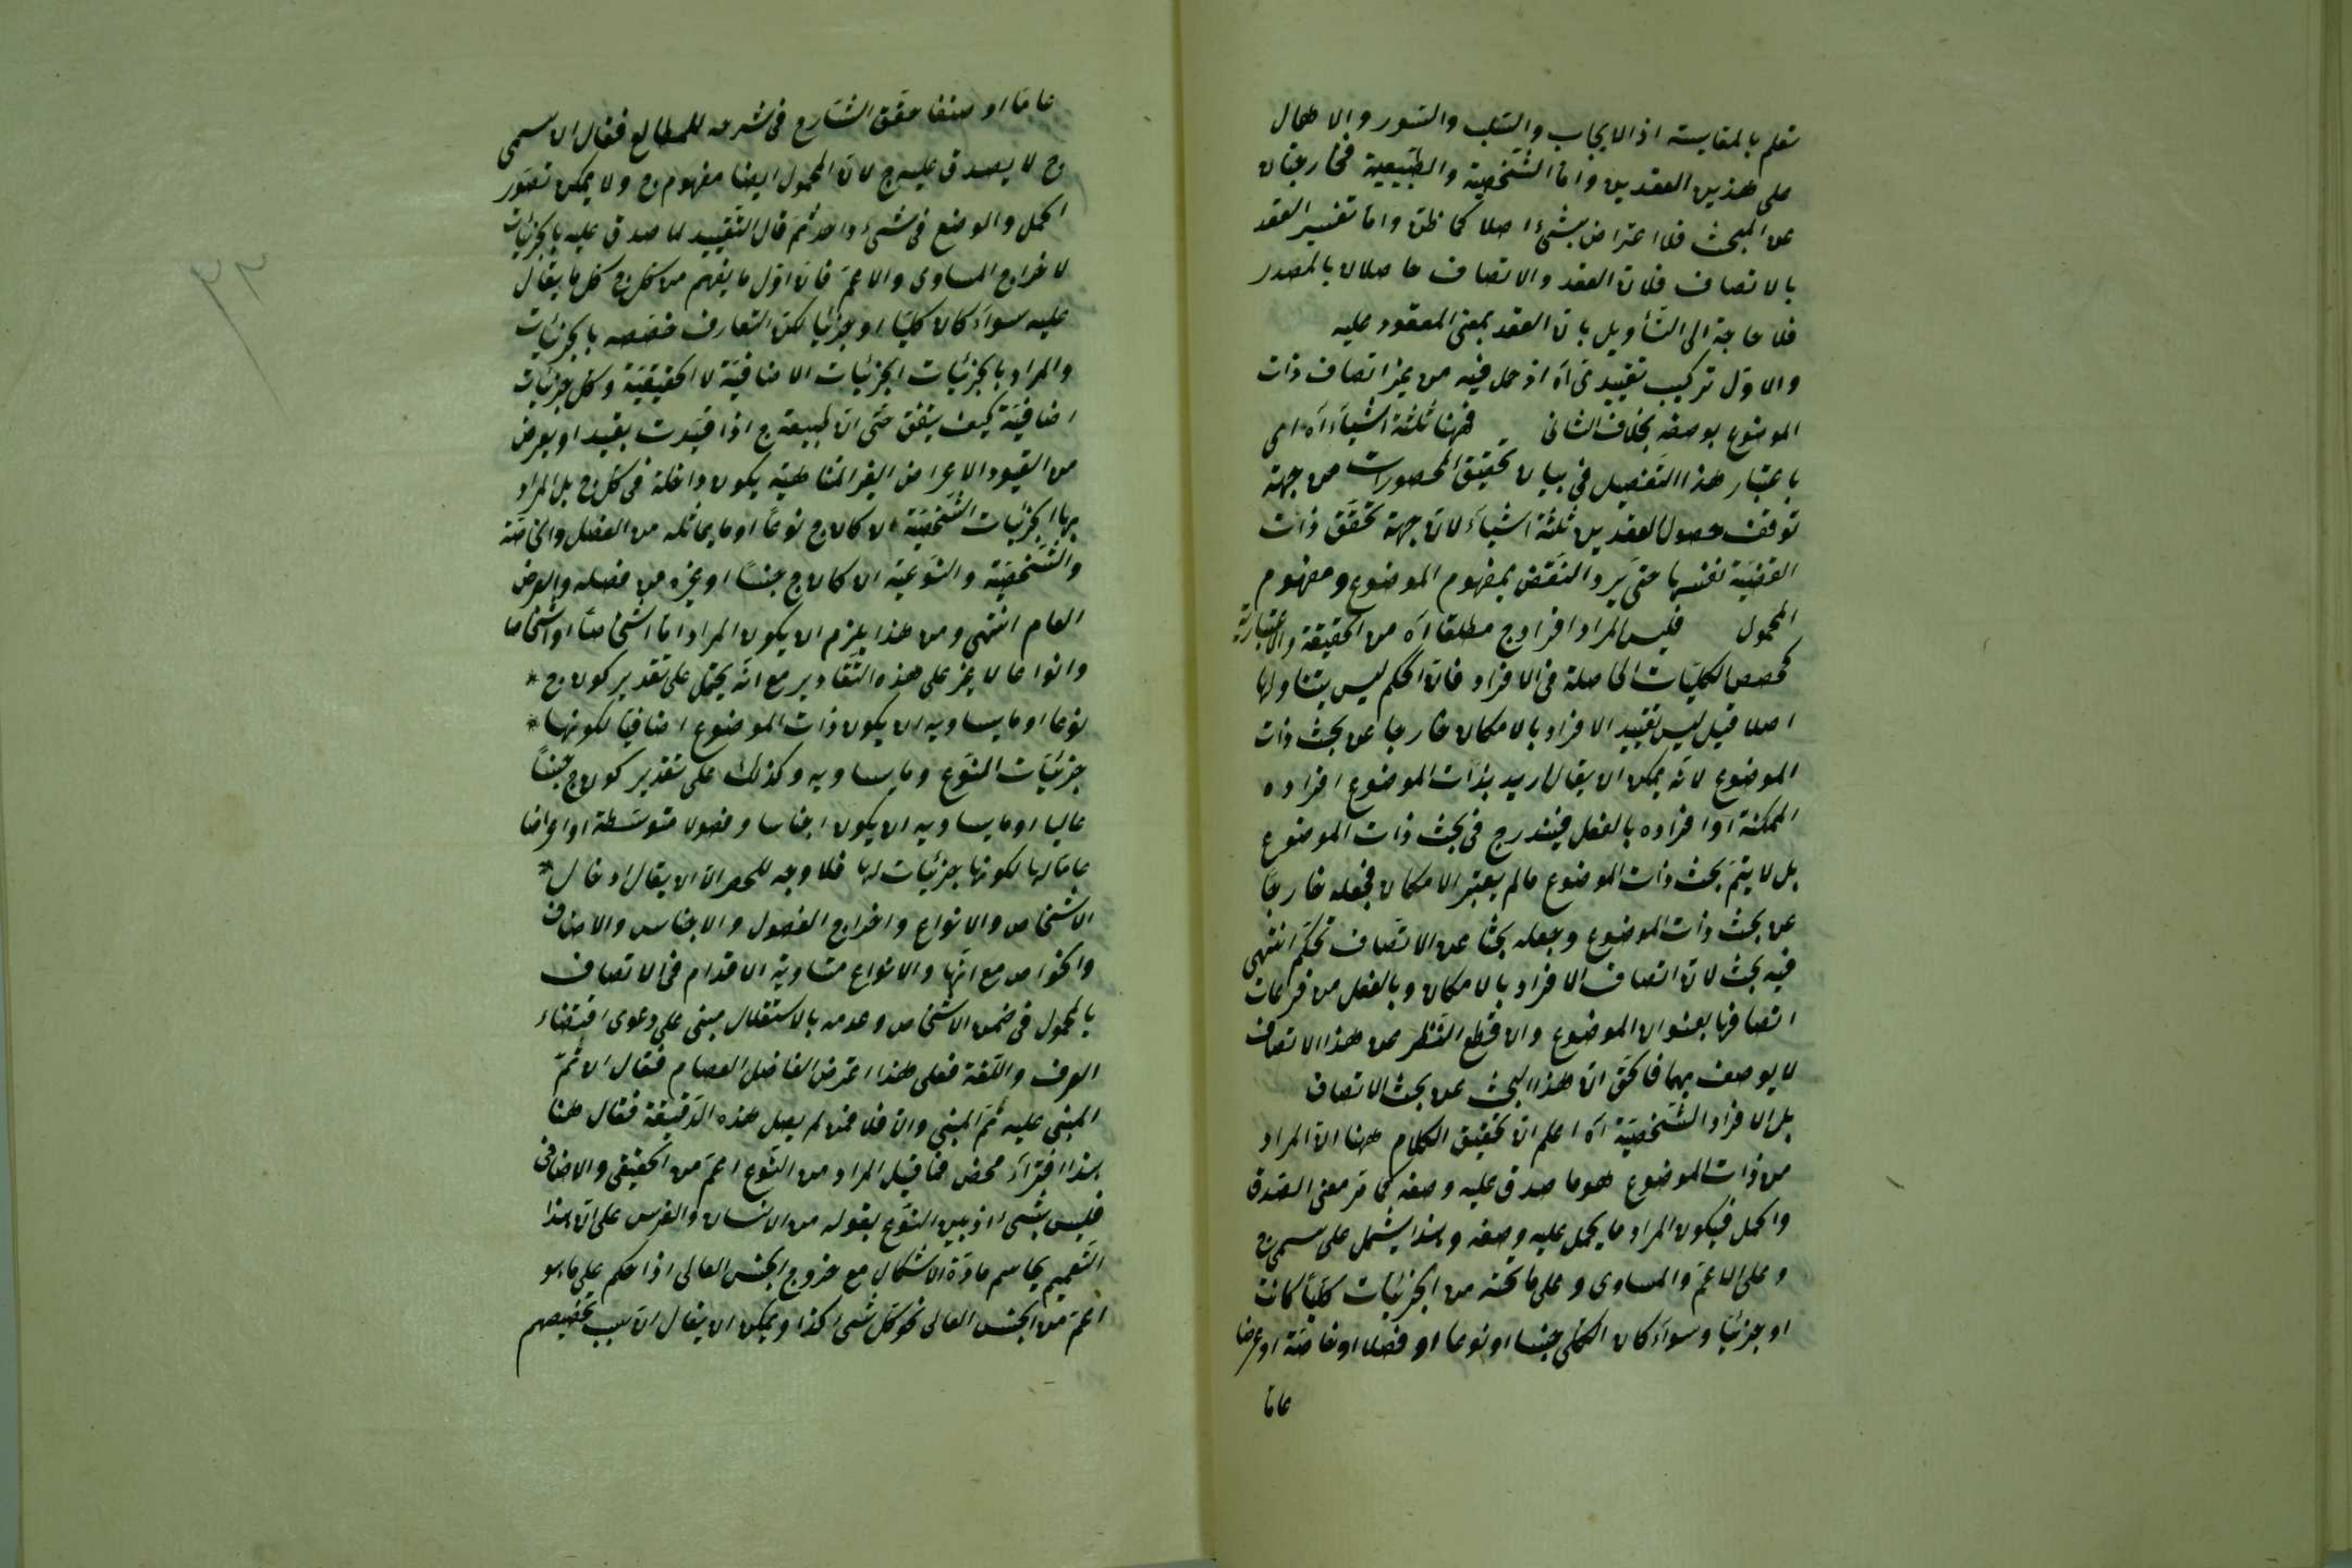 تعلم بالمقايسة اذ الايجاب والسّلب والسّور والاهمال
على هذين العقدين وامّا الشّخصيّة والطّبيعية فخارجتان
عن المبحث فلا اعتراض بشئ اصلا كما ظنّ وامّا تفسير العقد
بالاتصاف فلانّ العقد والاتصاف حاصلان بالمصدر
فلا حاجة الى التّأويل بانّ العقد بمعنى المعقود عليه
والاوّل تركيب تقييدى آه اذ حمل فيه من غير اتصاف ذات
الموضوع بوصفه بخلاف الثانى فههنا ثلثة اشياء آه اى
باعتبار هذا التّفصيل فى بيان تحقيق المحصورات من جهة
توقف حصول العقدين ثلثة اشياء لا من جهة تحقّق ذات
القضيّة نفسها حتى يرد النّقض بمفهوم الموضوع ومفهوم
المحمول فليس المراد افراد ج مطلقا آه من الحقيقة والاعتبارية
كحصص الكليّات الحاصلة فى الافراد فانّ الحكم ليس يتناولها
اصلا قيل ليس تقييد الافراد بالامكان خارجا عن بحث ذات
الموضوع لانّه يمكن ان يقال اريد بذات الموضوع افراده
الممكنة او افراده بالفعل فيندرج فى بحث ذات الموضوع
بل لا يتمّ بحث ذات الموضوع مالم يعتبر الامكان فجعله خارجا
عن بحث ذات الموضوع وجعله بحثا عن الاتصاف تحكّم انتهى
فيه بحث لانّ اتصاف الافراد بالامكان وبالفعل من فرعات
اتصافها بعنوان الموضوع والاقطع النّظر عن هذا الاتصاف
لا يوصف بهما فالحقّ انّ هذا البحث عن بحث الاتصاف
بل الافراد الشّخصيّة آه اعلم انّ تحقيق الكلام ههنا انّ المراد
من ذات الموضوع هو ما صدق عليه وصفه كما مرّ معنى الصّدق
والحمل فيكون المراد ما يحمل عليه وصفه وهذا يشمل على مسمى ج
وعلى الاعمّ والمساوى وعلى ما تحته من الجزئيات كليّا كانت
او جزئيا وسواء كان الكلى جنسا او نوعا او فصلا او خاصّة او عرضا
عامّا
عامّا او صنفا حقّق الشّارح فى شرحه للمطالع فقال انّ مسمى
ج لا يصدق عليه ج لانّ المحمول ايضا مفهوم ج ولا يمكن تصوّر
الحمل والوضع فى شئ واحد ثمّ قال التّقييد لما صدق عليه بالجزئيات
لاخراج المساوى والاعمّ فانّ اوّل ما يفهم من كل ج كل ما يقال
عليه سواء كان كليّا او جزئيا لكنّ التعارف خصّصه بالجزئيات
والمراد بالجزئيات الجزئيات الاضافيّة لا الحقيقيّة وكل جزئيات
اضافيّة كيف يتفق حتى انّ طبيعة ج اذا قيّدت بقيد او بعرض
من القيود الاعراض الغير المتناهية يكون داخلة فى كل ج بل المراد
بها الجزئيات الشّخصيّة ان كان ج نوعا او ما يماثله من الفصل والخاصّة
والشّخصيّة والنّوعيّة ان كان ج جنسا او غيره من فصله والعرض
العام انتهى ومن هذا يلزم ان يكون المراد امّا اشخاصا او اشخاصا
وانواعا لا غير على هذه التّقادير مع انّه يحتمل على تقدير كون ج
نوعا او ما يساويه ان يكون ذات الموضوع اضافيّا لكونها
جزئيات النّوع وما يساويه وكذلك على تقدير كون ج جنسا
عاليا او ما يساويه ان يكون اجناسا وفصولا متوسّطة او اعراضا
عامّا لها لكونها جزئيات لها فلا وجه للحصر الّا ان يقال ادخال
الاشخاص والانواع واخراج الفصول والاجناس والاصناف
والخواص مع انّها والانواع متساوية الاقدام فى الاتصاف
بالمحمول فى ضمن الاشخاص وعدمه بالاستقلال مبنى على دعوى اقتضاء
العرف واللّغة فعلى هذا اعترض الفاضل العصام فقال ان ثمّ
المبنى عليه ثمّ المبنى والا فلا فمن لم يصل هذه الدّقيقة فقال هنا
هذا افتراء محض فما قيل المراد من النّوع اعمّ من الحقيقى والاضافى
فليس بشئ اذ بيّن النّوع بقوله من الانسان والفرس على انّ هذا
التّعميم يحاسم مادّة الاشكال مع خروج الجنس العالى اذا حكم على ما هو
اعمّ من الجنس العالى نحو كل شئ كذا ويمكن ان يقال انّ سبب تخصيصهم